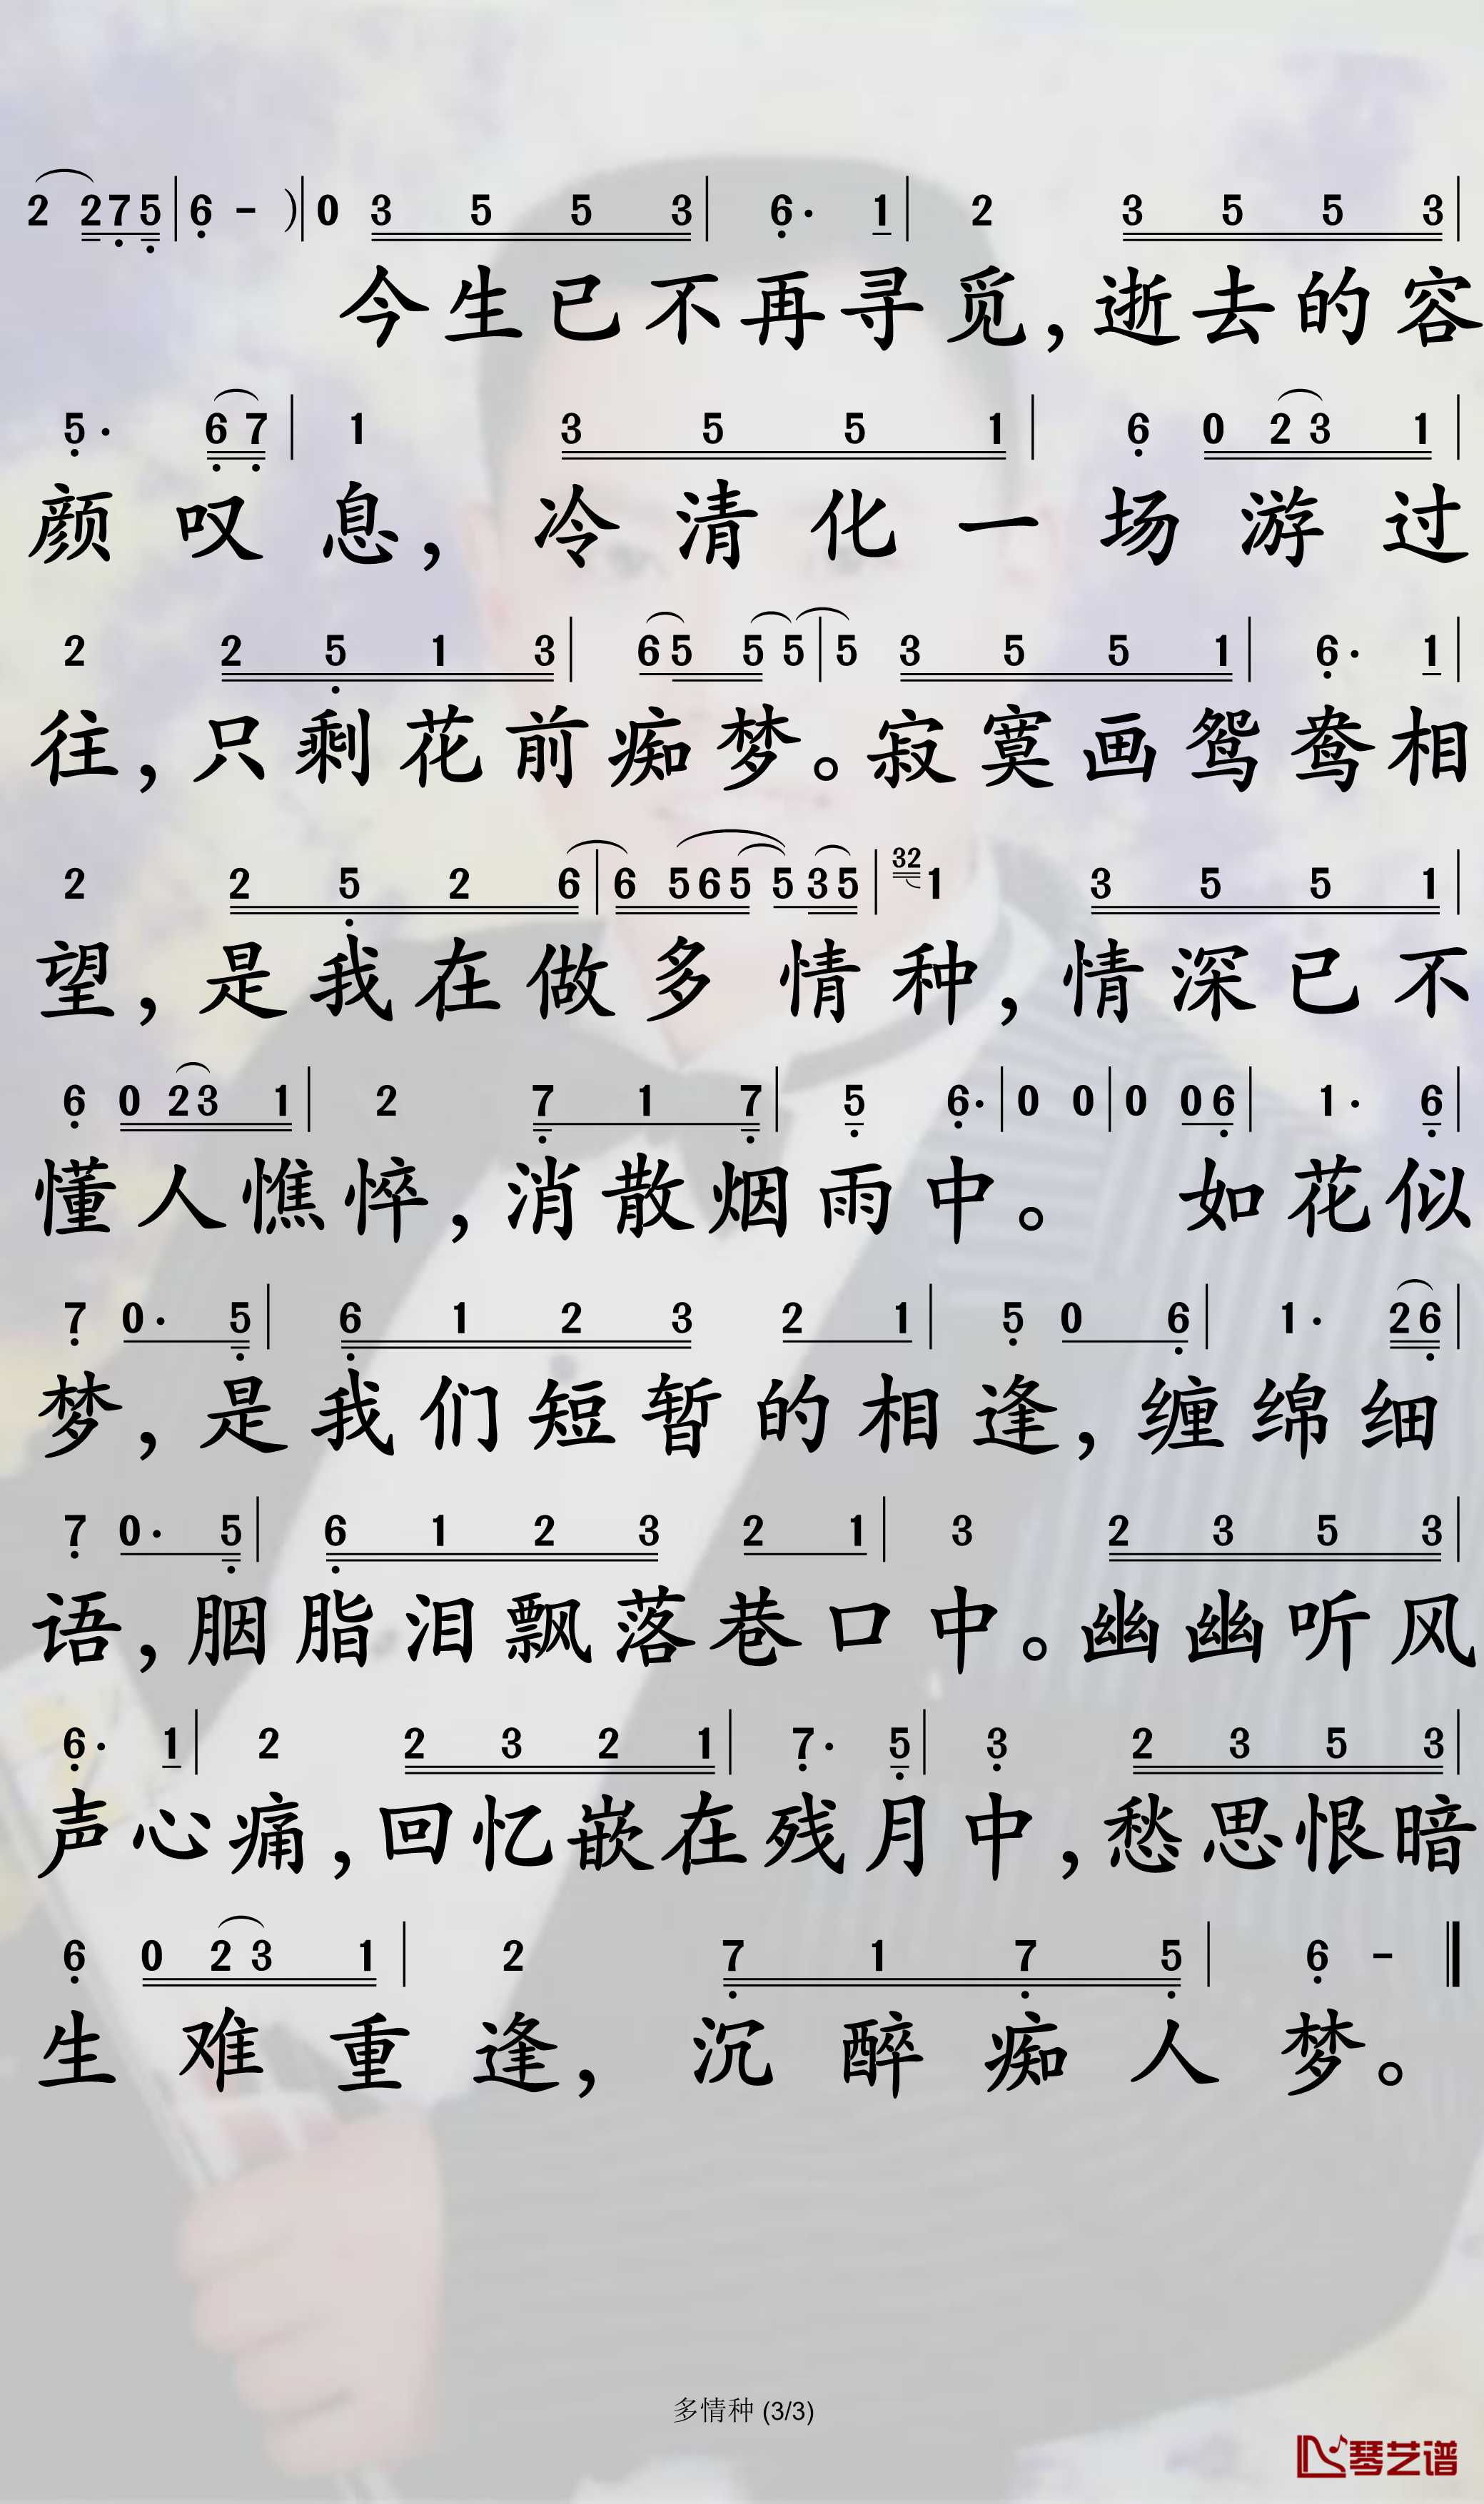 2 2 7 5 | 6 - ) | 0 3 5 5 3 | 6 · 1 | 2 3 5 5 3 |
今生已不再寻觅，逝去的容
5 · 6 7 | 1 3 5 5 1 | 6 0 2 3 1 |
颜叹息，冷清化一场游过
2 2 5 1 3 | 6 5 5 5 | 5 3 5 5 1 | 6 · 1 |
往，只剩花前痴梦。寂寞画鸳鸯相
2 2 5 2 6 | 6 5 6 5 5 3 5 | 32 1 3 5 5 1 |
望，是我在做多情种，情深已不
6 0 2 3 1 | 2 7 1 7 | 5 6 · | 0 0 | 0 0 6 | 1 · 6 |
懂人憔悴，消散烟雨中。如花似
7 0 · 5 | 6 1 2 3 2 1 | 5 0 6 | 1 · 2 6 |
梦，是我们短暂的相逢，缠绵细
7 0 · 5 | 6 1 2 3 2 1 | 3 2 3 5 3 |
语，胭脂泪飘落巷口中。幽幽听风
6 · 1 | 2 2 3 2 1 | 7 · 5 | 3 2 3 5 3 |
声心痛，回忆嵌在残月中，愁思恨暗
6 0 2 3 1 | 2 7 1 7 5 | 6 - ‖
生难重逢，沉醉痴人梦。
多情种 (3/3)
琴艺谱